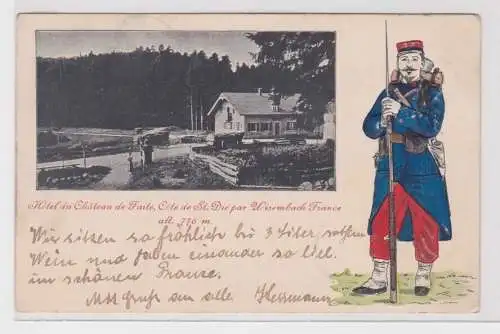 Hôtel du Château de Faite, Côte de St. Dié par Wisembach France
alt. 776 m
Wir sitzen so fröhlich bei 3 Liter rothen
Wein und haben einander so lieb
im schönen France.
Gruß an alle Hermann